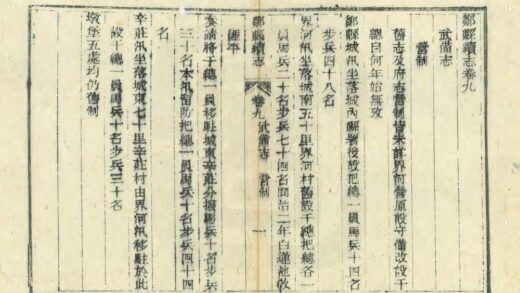 鄒縣續志卷九
武備志
營制
舊志及府志營制皆未詳界河營原設守備改設千
總自何年始無攷
鄒縣城汛坐落城內縣署後設把總一員馬兵十四名
步兵四十八名
界河汛坐落城南五十里界河村舊設千總把總各一
員馬兵二十名步兵七十四名同治二年白蓮池教
鄒縣續志 卷九武備志 營制 一
匪平
奏請將千總一員移駐城東辛莊分撥馬兵十名步兵
三十名本汛留防把總一員馬兵十名步兵四十四
名
辛莊汛坐落城東七十里辛莊村由界河汛移駐於此
設千總一員馬兵十名步兵三十名
墩堡五處均仍舊制